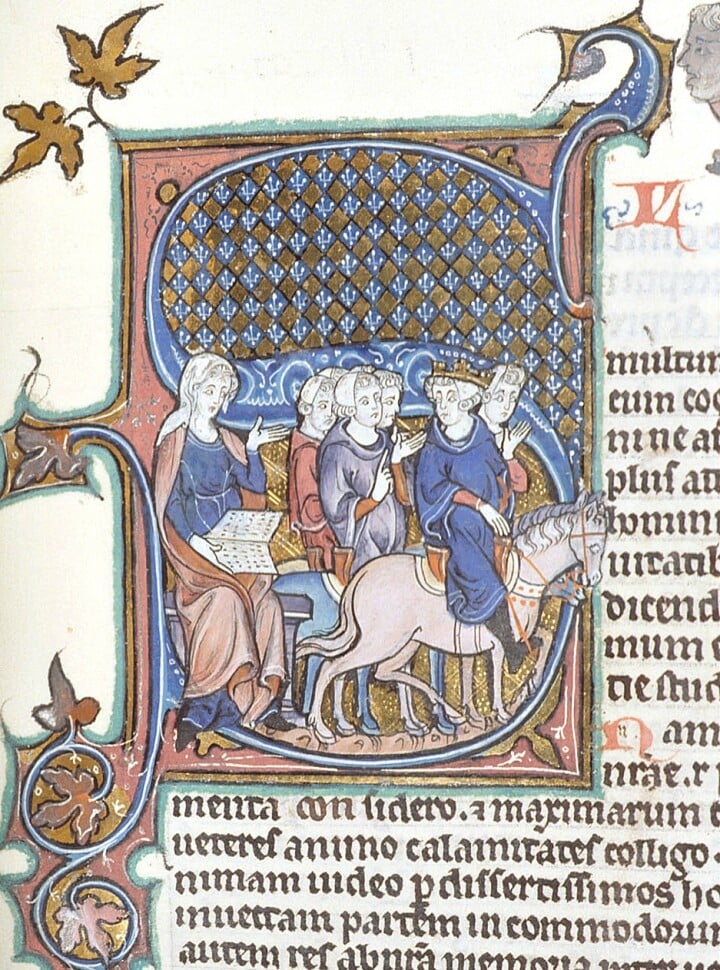 multum
cum co
ni ne a
plus att
homin
uitatib
dicend
mum e
tie stud
Nam
nrae. r
menta considero. ⁊ maximarum
ueteres animo calamitates colligo
nimam uideo ꝑ dissertissimos ho
inuectam partem in commodorum
autem res ab nrã memoria